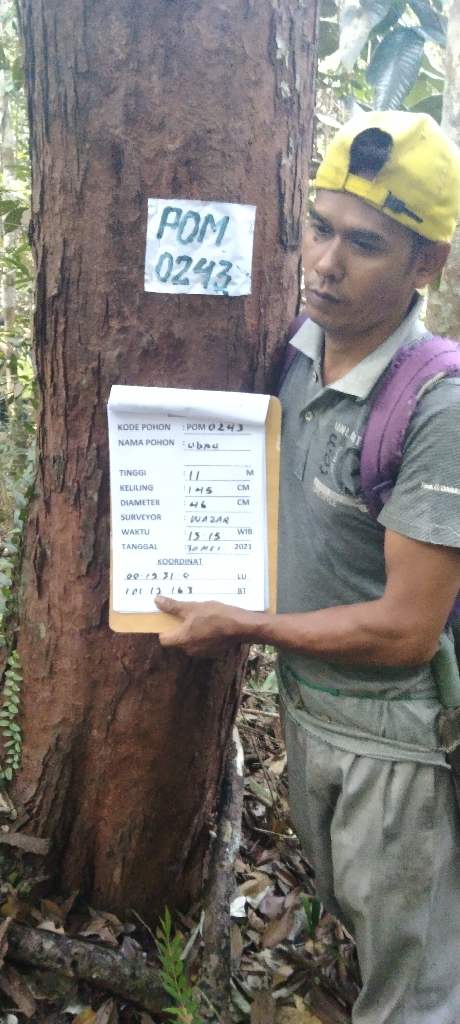 POM
0243
KODE POHON : POM 0243
NAMA POHON : UBAU
TINGGI : 11 M
KELILING : 145 CM
DIAMETER : 46 CM
SURVEYOR : WAZAR
WAKTU : 15-15 WIB
TANGGAL : 30 MEI 2021
KOORDINAT
LU
BT